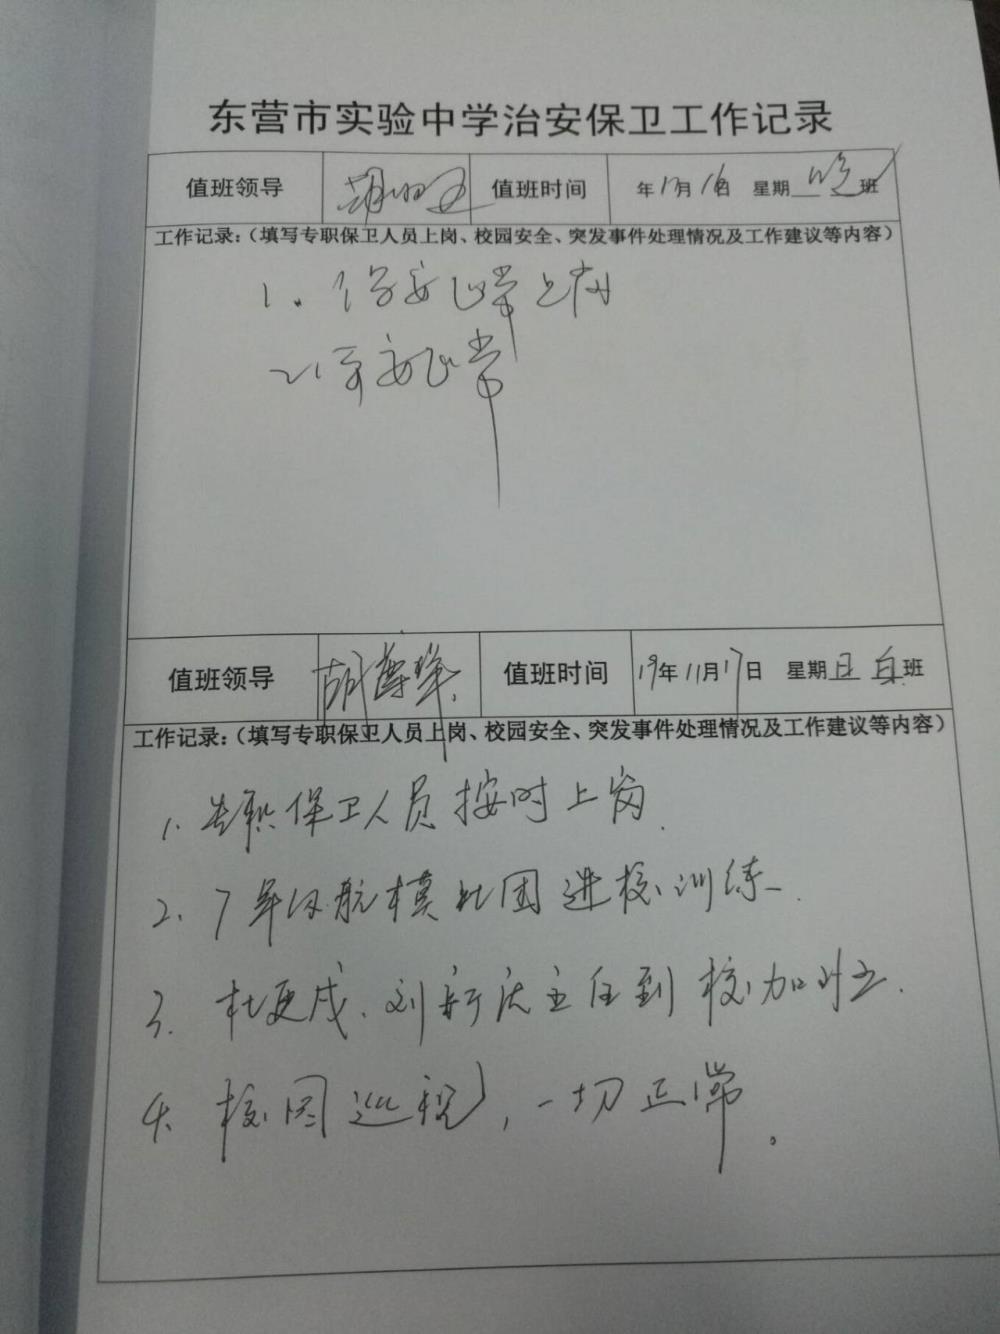 东营市实验中学治安保卫工作记录
值班领导 值班时间 年11月16日 星期 晚班
工作记录：（填写专职保卫人员上岗、校园安全、突发事件处理情况及工作建议等内容）
1. 保安正常上岗
2. 平安正常
值班领导 胡尊峰 值班时间 19年11月17日 星期日 白班
工作记录：（填写专职保卫人员上岗、校园安全、突发事件处理情况及工作建议等内容）
1. 专职保卫人员按时上岗.
2. 7年级航模社团进校训练.
3. 杜更戌、刘新庆主任到校加班.
4. 校园巡视, 一切正常。